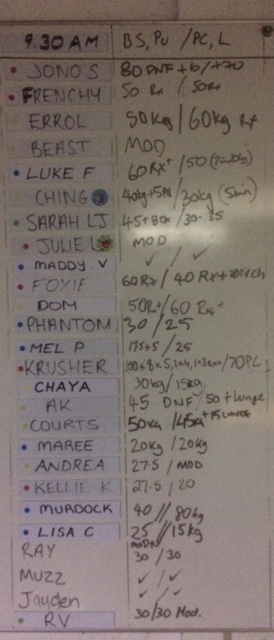 9.30 AM BS, PU / PC, L
JONO S 80 DNF +6 / +70
FRENCHY 50 Rx / 50Rx
ERROL 50kg / 60kg Rx
BEAST MOD
LUKE F 60 Rx+ / 50
CHING 40kg+5PU / 30kg (5min)
SARAH LJ 45+8 / 30-35
JULIE L MOD
MADDY.V ✓ / ✓
FOXIE 60Rx / 40 Rx+
DOM 50Rx / 60 Rx+
PHANTOM 30 / 25
MEL P 17.5+5 / 25
KRUSHER /70PC
CHAYA 30kg / 15kg
AK 45 DNF / 50 + lunge
COURTS 50kg / 45kg + 15 LUNGE
MAREE 20kg / 20kg
ANDREA 27.5 / MOD
KELLIE K 27.5 / 20
MURDOCK 40 // 80kg
LISA C 25 // 15kg
RAY 30 / 30
MUZZ ✓ / ✓
Jayden ✓ / ✓
RV 30/30 Mod.